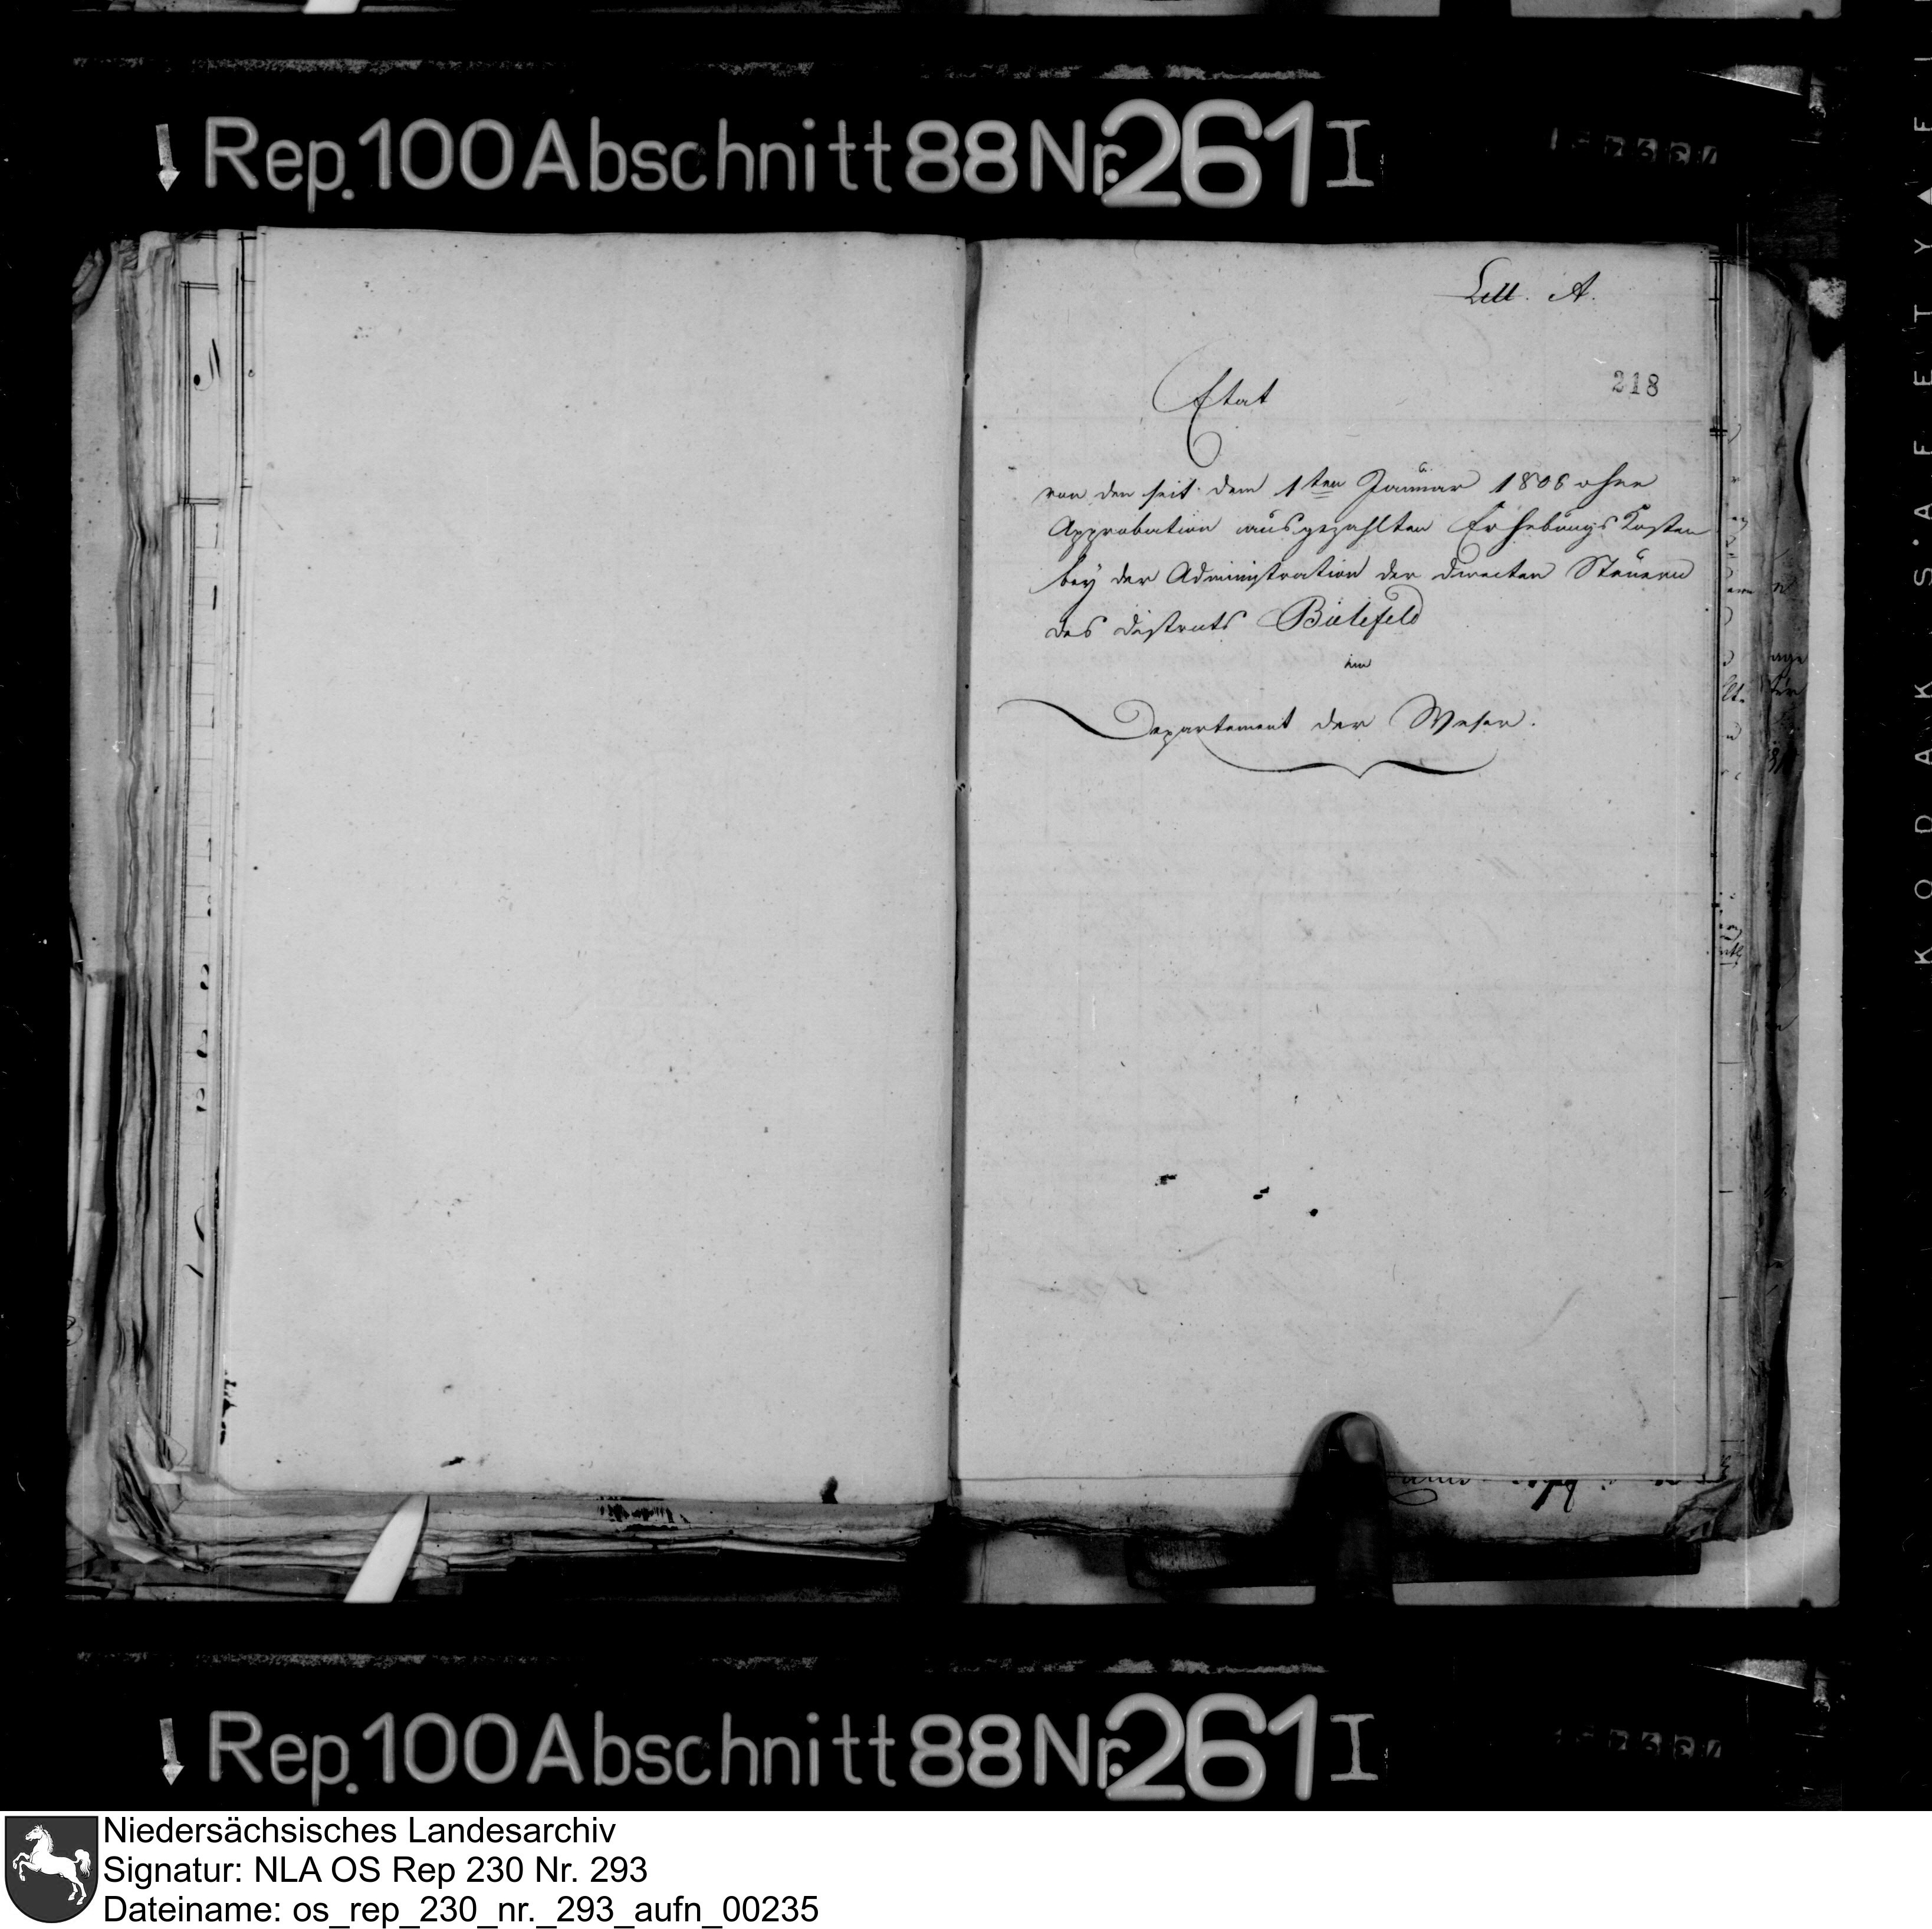 Rep. 100 Abschnitt 88 Nr. 261 I
Litt. A.
218
Etat
von den seit dem 1ten Januar 1808 ohne
Approbation ausgezahlten Erhebungs Kosten
bey der Administration der directen Steuern
des Districts Bielefeld
im
Departement der Weser.
Rep. 100 Abschnitt 88 Nr. 261 I
KODAK SAFETY
Niedersächsisches Landesarchiv
Signatur: NLA OS Rep 230 Nr. 293
Dateiname: os_rep_230_nr._293_aufn_00235